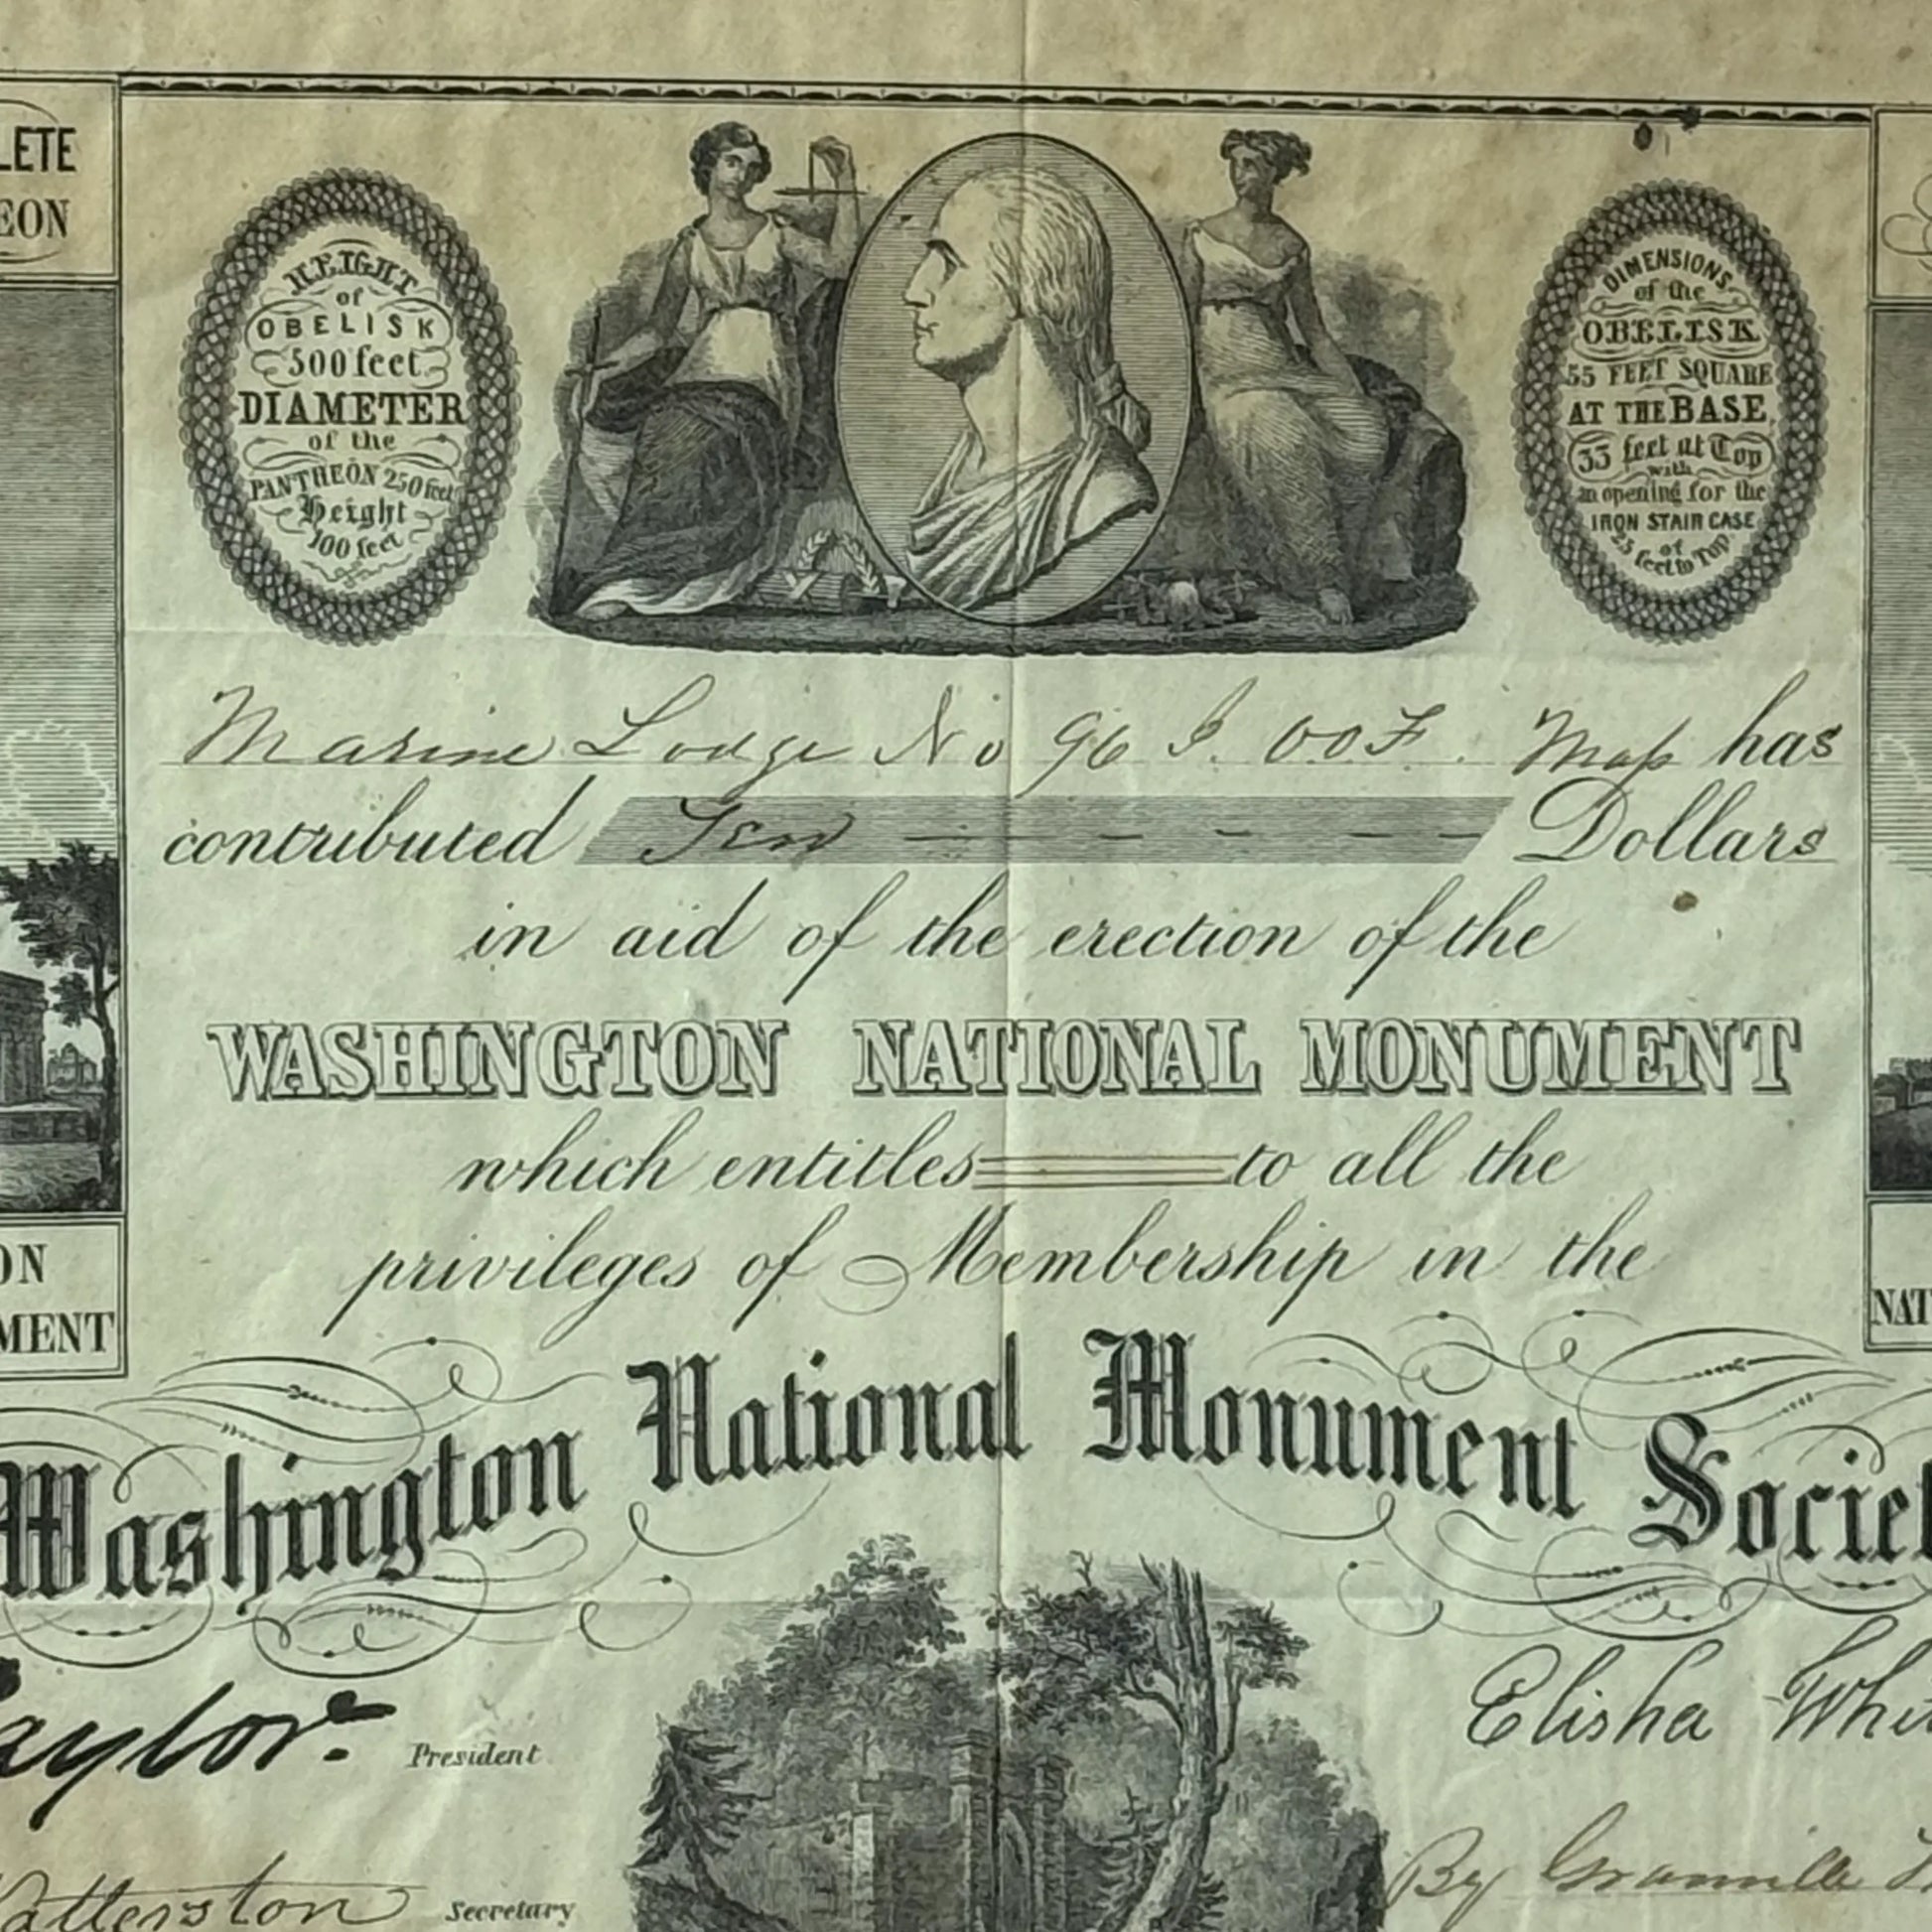 LETE
EON
HEIGHT
of
OBELISK
500 feet
DIAMETER
of the
PANTHEON 250 feet
Height
100 feet
DIMENSIONS
of the
OBELISK
55 FEET SQUARE
AT THE BASE
33 feet at Top
with
an opening for the
IRON STAIR CASE
of
25 feet to Top
Marine Lodge No 96 I.O.O.F. Mass has
contributed Ten Dollars
in aid of the erection of the
WASHINGTON NATIONAL MONUMENT
which entitles to all the
privileges of Membership in the
ON
MENT
NAT
Washington National Monument Societ
aylor. President
Elisha Whi
atterston Secretary
By Granville